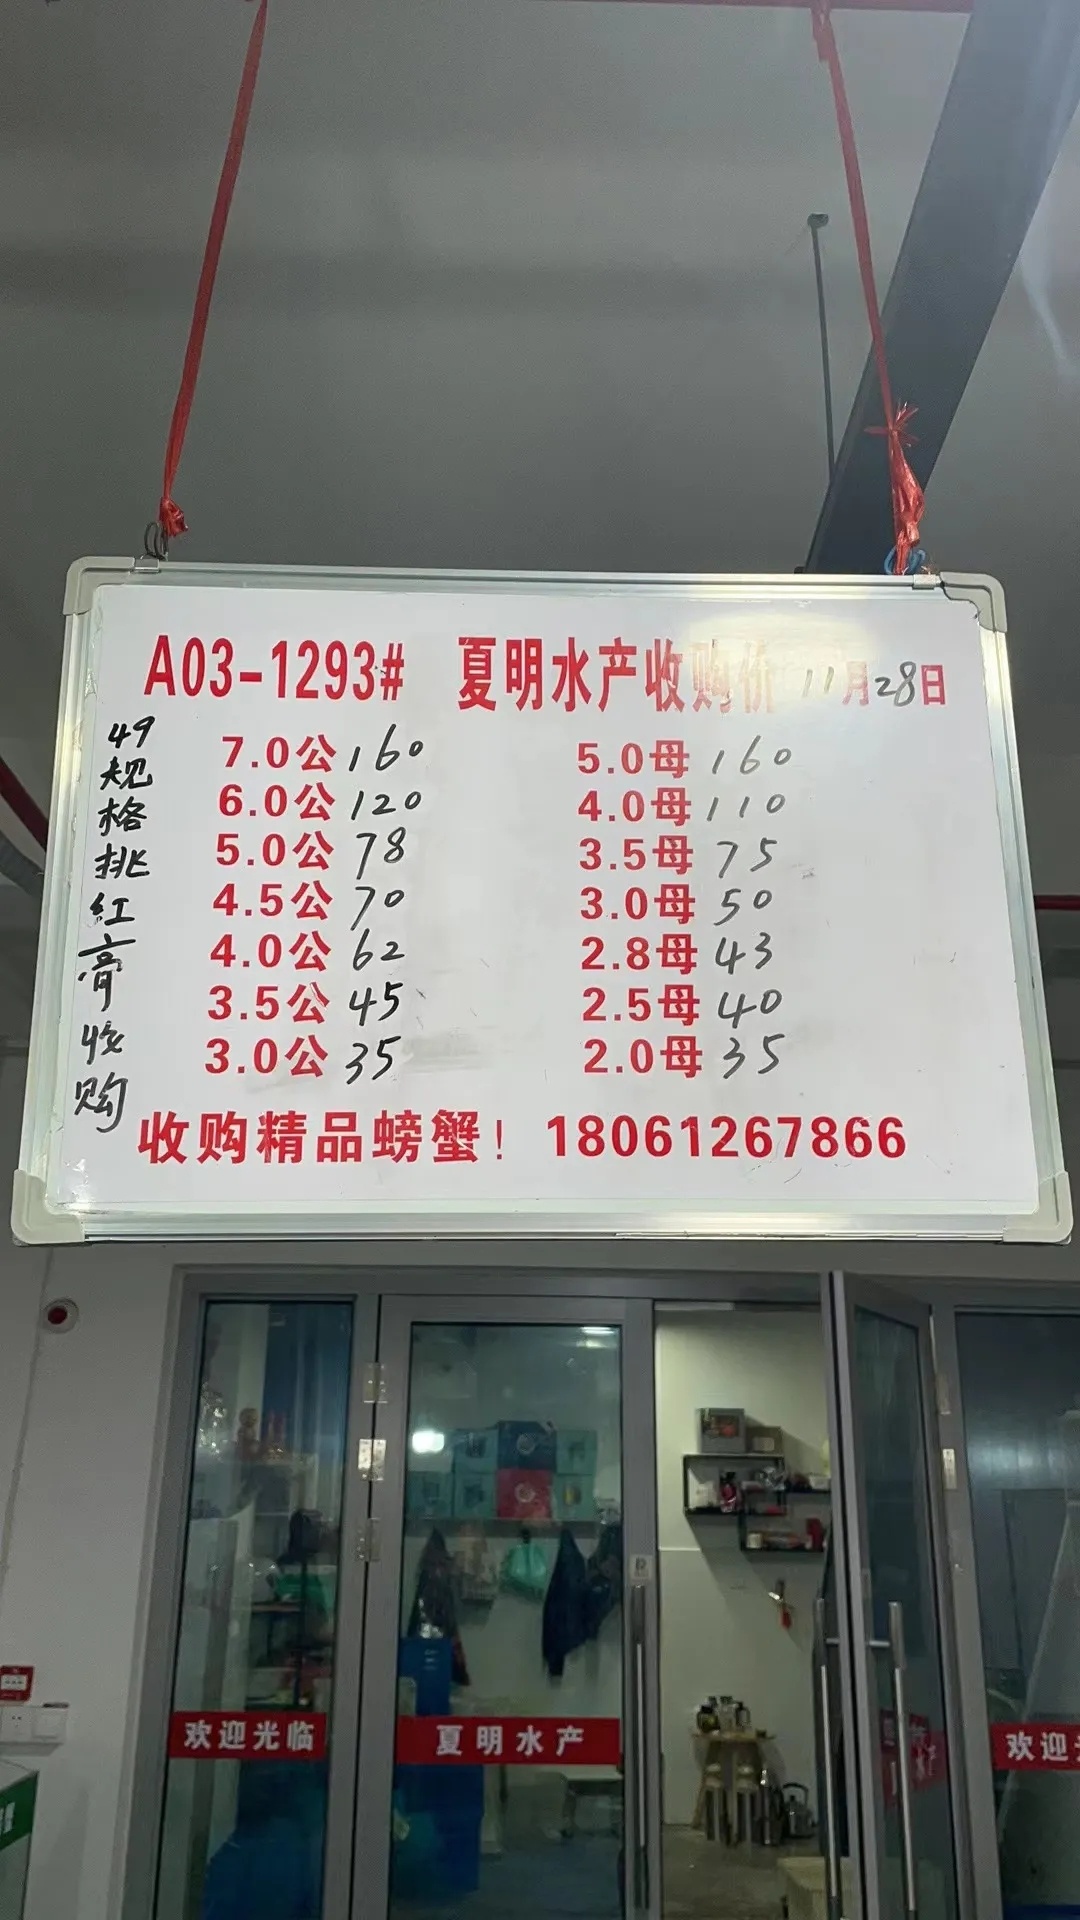 A03-1293# 夏明水产收购价 11月28日
49规格挑红膏收购
7.0公 160 5.0母 160
6.0公 120 4.0母 110
5.0公 78 3.5母 75
4.5公 70 3.0母 50
4.0公 62 2.8母 43
3.5公 45 2.5母 40
3.0公 35 2.0母 35
收购精品螃蟹！ 18061267866
欢迎光临
夏明水产
欢迎光